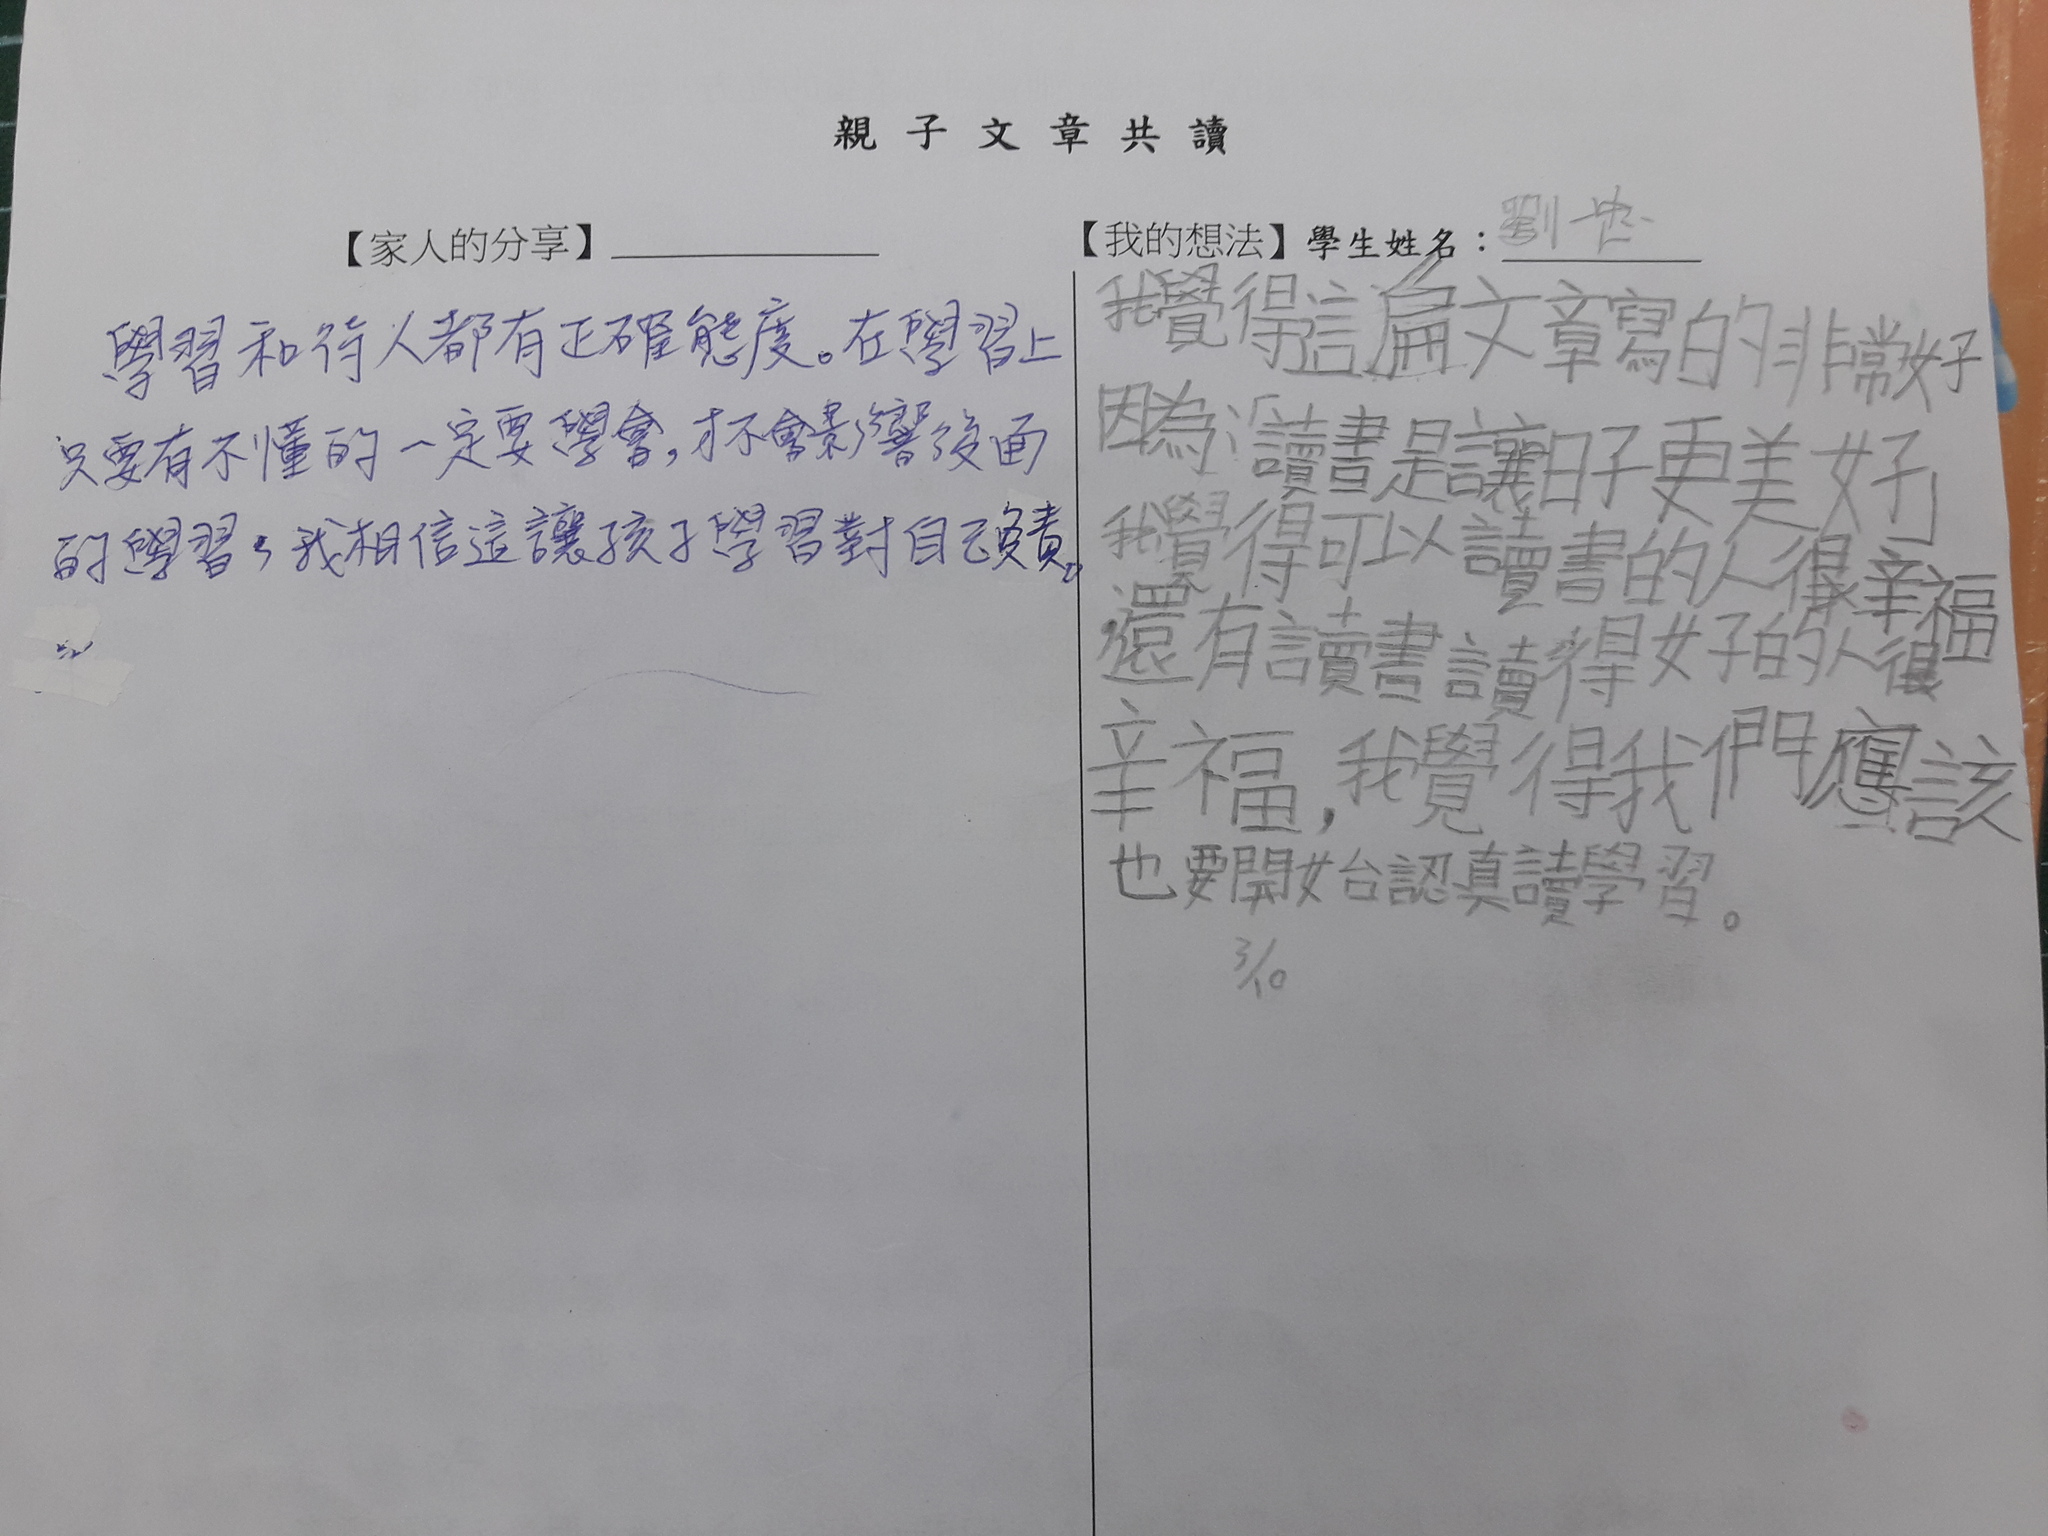 親子文章共讀
【家人的分享】
學習和待人都有正確態度。在學習上
只要有不懂的一定要學會,才不會影響後面
的學習,我相信這讓孩子學習對自己負責。
【我的想法】學生姓名:劉
我覺得這篇文章寫的非常好
因為讀書是讓日子更美好
我覺得可以讀書的人很幸福
還有讀書讀得好的人很
幸福,我覺得我們應該
也要開始認真讀學習。
3/10